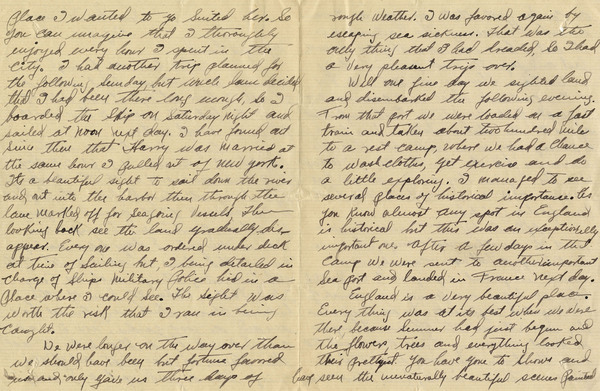 place I wanted to go suited her. So
you can imagine that I thoroughly
enjoyed every hour I spent in the
city. I had another trip planned for
the following Sunday but Uncle Sam decided
that I had been there long enough, so I
boarded the ship on Saturday night and
sailed at noon next day. I have found out
since then that Harry was married at
the same hour I pulled out of New York.
It's a beautiful sight to sail down the river
and out into the harbor then through the
lane marked off for seagoing vessels. Then
looking back see the land gradually dis-
appear. Every one was ordered under deck
at time of sailing but, I being detailed in
charge of Ships Military Police hid in a
place where I could see. The sight was
worth the risk that I ran in being
caught.
We were longer on the way over than
we should have been but fortune favored
us and only gave us three days of
rough weather. I was favored again by
escaping sea sickness. That was the
only thing that I had dreaded, so I had
a very pleasant trip over.
Well one fine day we sighted land
and disembarked the following evening.
From that port we were loaded on a fast
train and taken about two hundred miles
to a rest camp, where we had a chance
to wash clothes, get exercise and do
a little exploring. I managed to see
several places of historical importance. As
you know almost any spot in England
is historical but this was an exceptionally
important one. After a few days in that
camp we were sent to another important
sea port and landed in France next day.
England is a very beautiful place.
Every thing was at its best when we were
there because summer had just begun and
the flowers, trees and everything looked
their prettiest. You have gone to shows and
have seen the unnaturally beautiful scenes painted